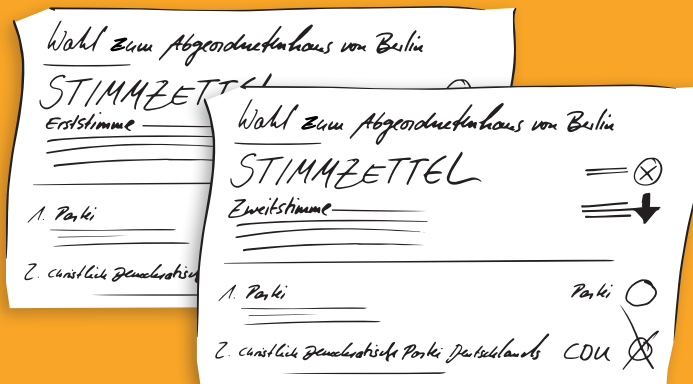 Wahl zum Abgeordnetenhaus von Berlin
STIMMZETTEL
Erststimme
1. Partei
2. Christlich Demokratisch
Wahl zum Abgeordnetenhaus von Berlin
STIMMZETTEL
Zweitstimme
1. Partei Partei
2. Christlich Demokratische Partei Deutschlands CDU